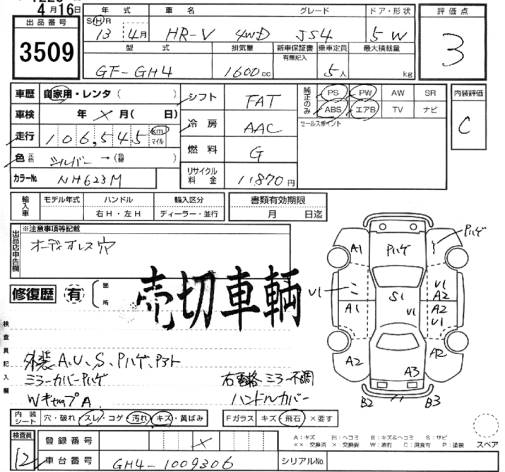 4月16日
出品番号
3509
年式 車名 グレード ドア・形状
SHR 13年4月 HR-V 4WD JS4 5W
型式 排気量 新車保証書 乗車定員 最大積載量
有無記入
GF-GH4 1600cc 5人 kg
評価点
3
車歴 自家用・レンタ( )
車検 年 × 月( 日)
走行 106,545 km マイル
色 シルバー → (替)
カラーNo. NH623M
シフト FAT
冷房 AAC
燃料 G
リサイクル料金 11870円
純正のみ PS PW AW SR
ABS エアB TV ナビ
セールスポイント
内装評価
C
輸入車 モデル年式 ハンドル 輸入区分
右H・左H ディーラー・並行
書類有効期限
月 日迄
出品店申告欄
※注意事項等記載
オーディオレス穴
修復歴 有 箇所
売切車輌
検査員記入欄
外装 A、U、S、Pハゲ、
ミラーカバーPハゲ
WキャップA
右電格ミラー不調
ハンドルカバー
A1 Pハゲ Pハゲ
U1 S1 U1
A2
U1 A2
A2 A3 A2
B2 B3
スペア
内装シート 穴・破れ・スレ・コゲ・汚れ・キズ・黄ばみ
Fガラス キズ・飛石・×要す
検査員 12
登録番号 ×
車台番号 GH4-1009306
シリアルNo.